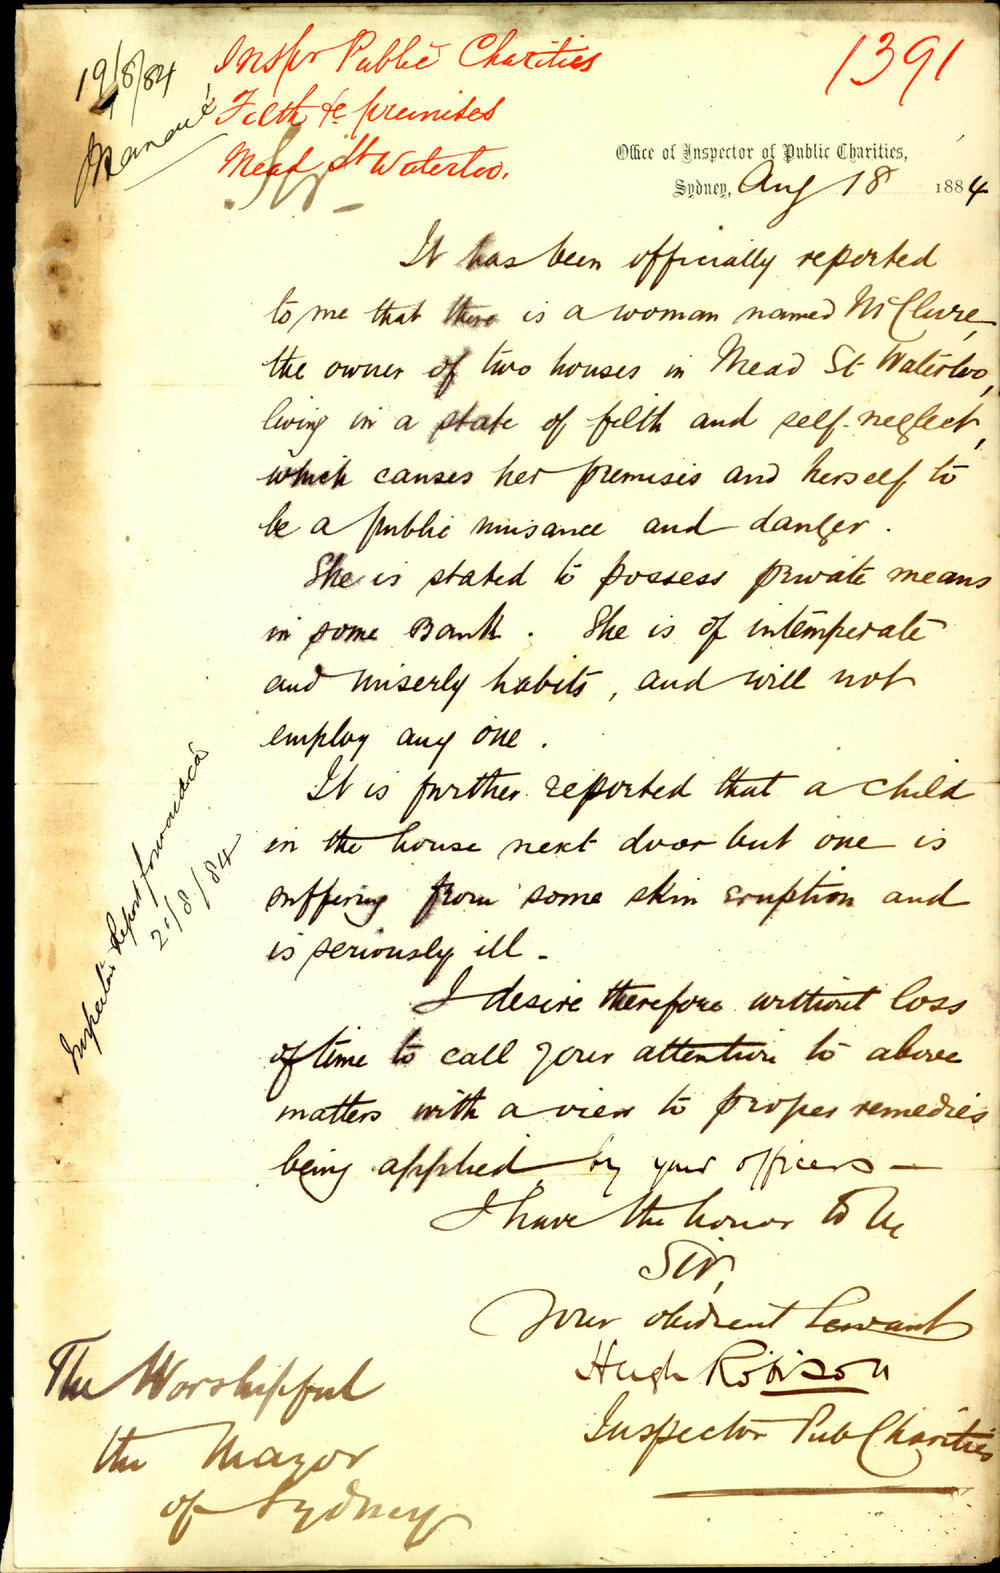 19/8/84
Inspr Public Charities
1391
Filth &c premises
Mead St Waterloo.
Office of Inspector of Public Charities,
Sydney, Aug 18 1884
It has been officially reported
to me that there is a woman named McClure,
the owner of two houses in Mead St Waterloo,
living in a state of filth and self-neglect,
which causes her premises and herself to
be a public nuisance and danger.
She is stated to possess private means
in some Bank. She is of intemperate
and miserly habits, and will not
employ any one.
It is further reported that a child
in the house next door but one is
suffering from some skin eruption and
is seriously ill-
I desire therefore without loss
of time to call your attention to above
matters with a view to proper remedies
being applied by your officers—
I have the honor to be
Sir,
Your obedient Servant
Hugh Robison
Inspector Pub Charities
The Worshipful
the Mayor
of Sydney
Inspectors Report forwarded
21/8/84